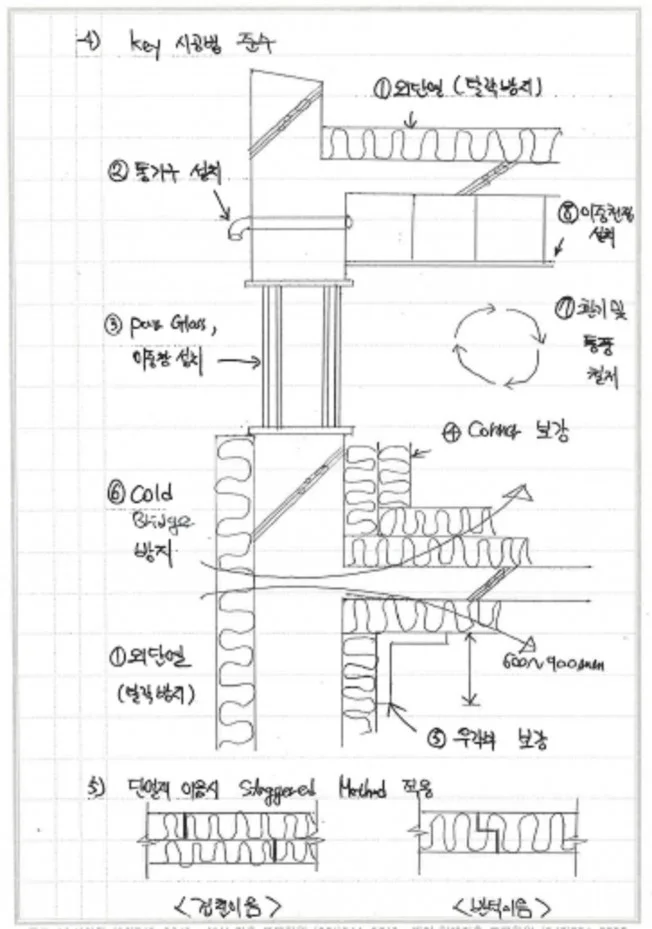 4) key 시공법 준수
① 외단열 (탈락방지)
② 통기구 설치
⑧ 이중천정
설치
③ pair Glass,
이중창 설치
⑦ 환기 및
통풍
철저
④ Corner 보강
⑥ Cold
Bridge
방지
① 외단열
(탈락방지)
600~900mm
⑤ 우각부 보강
5) 단열재 이음시 Staggered Method 적용
<겹친이음>
<반턱이음>